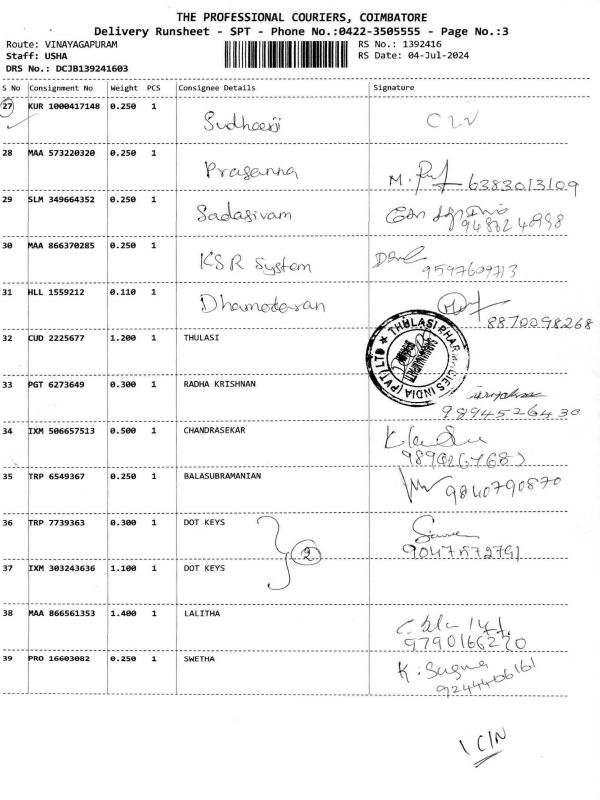 THE PROFESSIONAL COURIERS, COIMBATORE
Delivery Runsheet - SPT - Phone No.:0422-3505555 - Page No.:3
Route: VINAYAGAPURAM RS No.: 1392416
Staff: USHA RS Date: 04-Jul-2024
DRS No.: DCJB139241603
S No Consignment No Weight PCS Consignee Details Signature
27 KUR 1000417148 0.250 1
Sudheerji
28 MAA 573220320 0.250 1
Prasanna 6383013109
29 SLM 349664352 0.250 1
Sadasivam
30 MAA 866370285 0.250 1
KSR System 9597609713
31 HLL 1559212 0.110 1
Dhamodaran 8870098268
32 CUD 2225677 1.200 1 THULASI
THULASI PHARMACIES INDIA (PVT) LTD
33 PGT 6273649 0.300 1 RADHA KRISHNAN
9894526430
34 IXM 506657513 0.500 1 CHANDRASEKAR
35 TRP 6549367 0.250 1 BALASUBRAMANIAN
9840790870
36 TRP 7739363 0.300 1 DOT KEYS
2 9047572791
37 IXM 303243636 1.100 1 DOT KEYS
38 MAA 866561353 1.400 1 LALITHA
9790166270
39 PRO 16603082 0.250 1 SWETHA
K. Suguna
9244406161
1 C/N